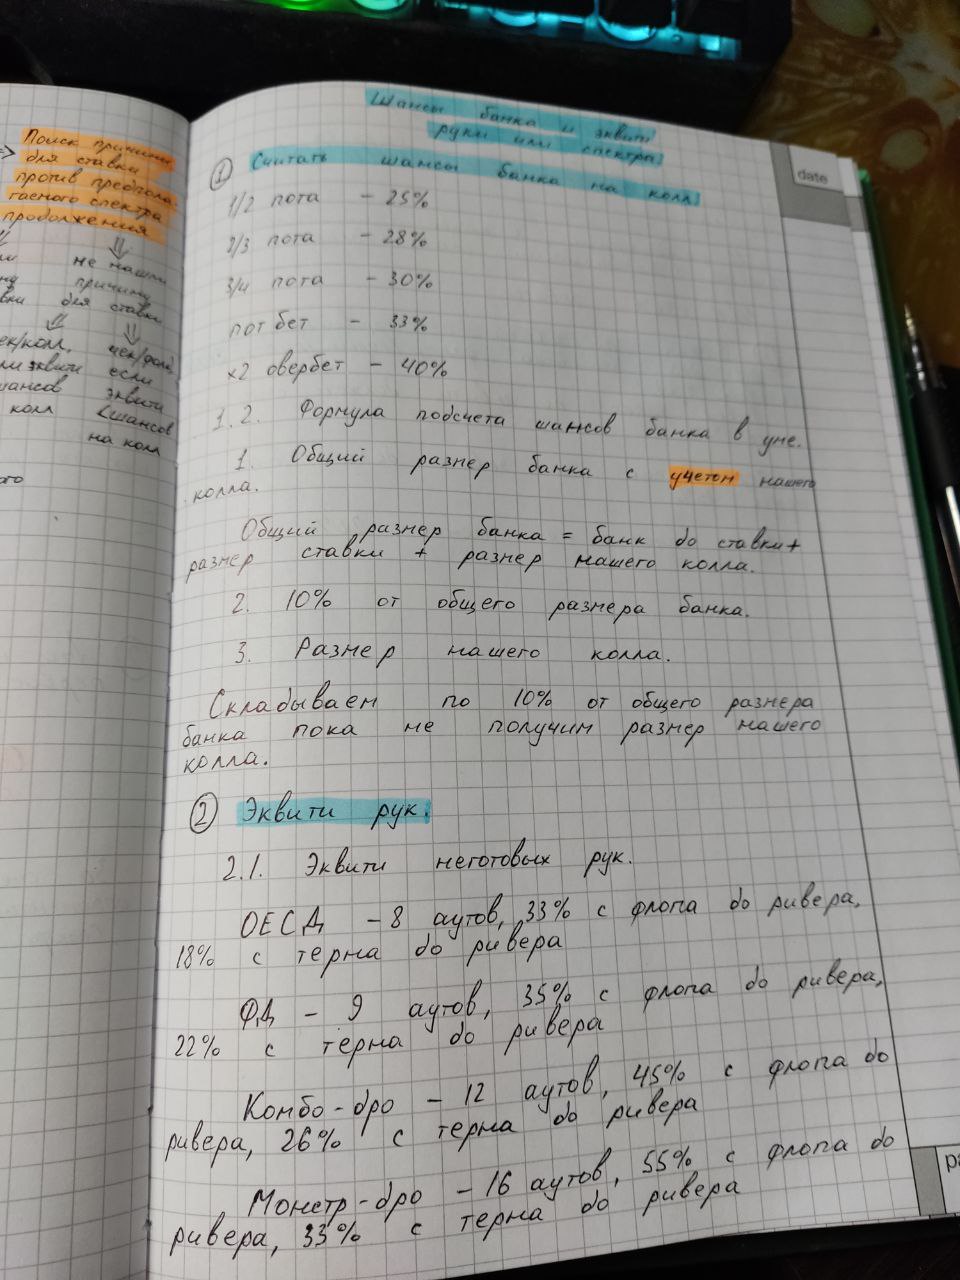 => Поиск причины
для ставки
против предпола-
гаемого спектра
продолжения
не нашли
причину
для ставки
чек/фолд
если
эквити
колл < шансов
на колл
Шансы банка и эквити
руки или спектра
date
① Считать шансы банка на колл
1/2 пота - 25%
2/3 пота - 28%
3/4 пота - 30%
пот бет - 33%
x2 овербет - 40%
1.2. Формула подсчета шансов банка в уме.
1. Общий размер банка с учетом нашего
колла.
Общий размер банка = банк до ставки +
размер ставки + размер нашего колла.
2. 10% от общего размера банка.
3. Размер нашего колла.
Складываем по 10% от общего размера
банка пока не получим размер нашего
колла.
② Эквити рук.
2.1. Эквити неготовых рук.
ОЕСД - 8 аутов, 33% с флопа до ривера,
18% с терна до ривера
ФД - 9 аутов, 35% с флопа до ривера,
22% с тёрна до ривера
Комбо-дро - 12 аутов, 45% с флопа до
ривера, 26% с терна до ривера
Монстр-дро - 16 аутов, 55% с флопа до
ривера, 33% с терна до ривера